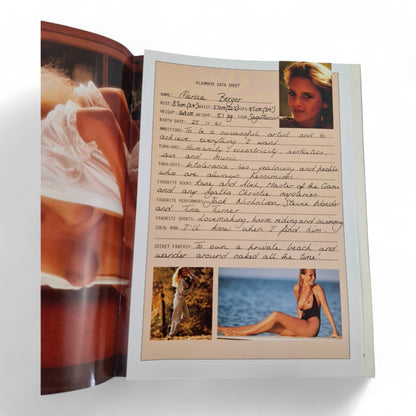 PLAYMATE DATA SHEET
NAME: Marcia Berger
BUST: WAIST: HIPS:
HEIGHT: WEIGHT: 51 kg. SIGN: Sagittarius
BIRTH DATE: 25. 11. 61
AMBITIONS: To be a successful artist and to
achieve everything I want.
TURN-ONS: Humanity, eccentricity, aesthetics,
sun and music.
TURN-OFFS: Intolerance, lies, jealousy and people
who are always pessimistic.
FAVORITE BOOKS: Kane and Abel, Master of the Game
and any Agatha Christie mysteries.
FAVORITE PERFORMERS: Jack Nicholson, Stevie Wonder
and Tina Turner
FAVORITE SPORTS: Lovemaking, horse riding and swimming
IDEAL MAN: I'll know when I find him.
SECRET FANTASY: To own a private beach and
wander around naked all the time!